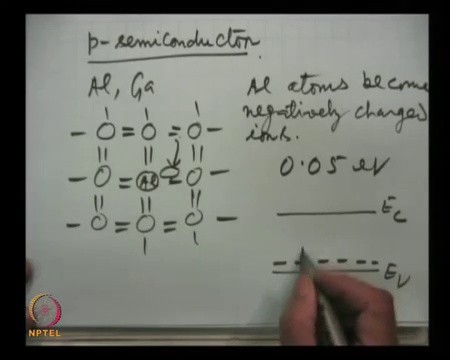 p-semiconductor
Al, Ga
Al atoms become
negatively charged
ions.
0.05 eV
Al
Ec
Ev
NPTEL